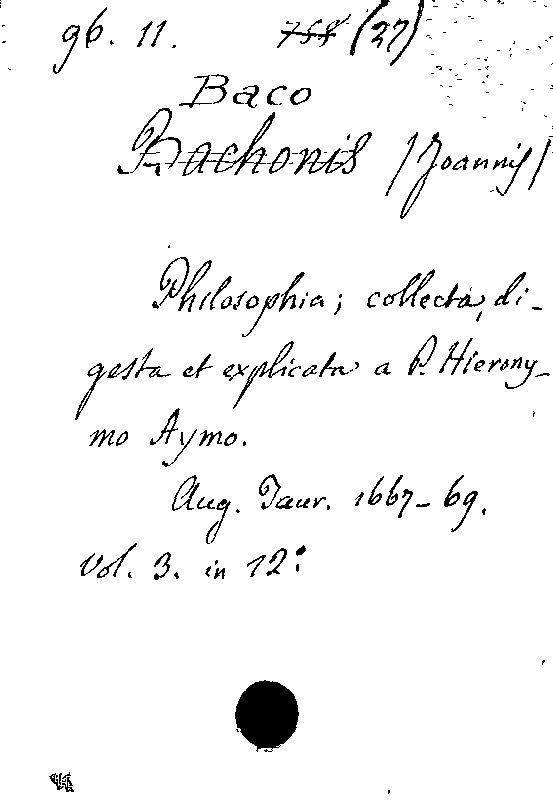 96. 11. 758 (27)
Baco
Bachonis (Joannis)
Philosophia; collecta, di-
gesta et explicata a P. Hierony-
mo Aymo.
Aug. Taur. 1667-69.
Vol. 3. in 12º